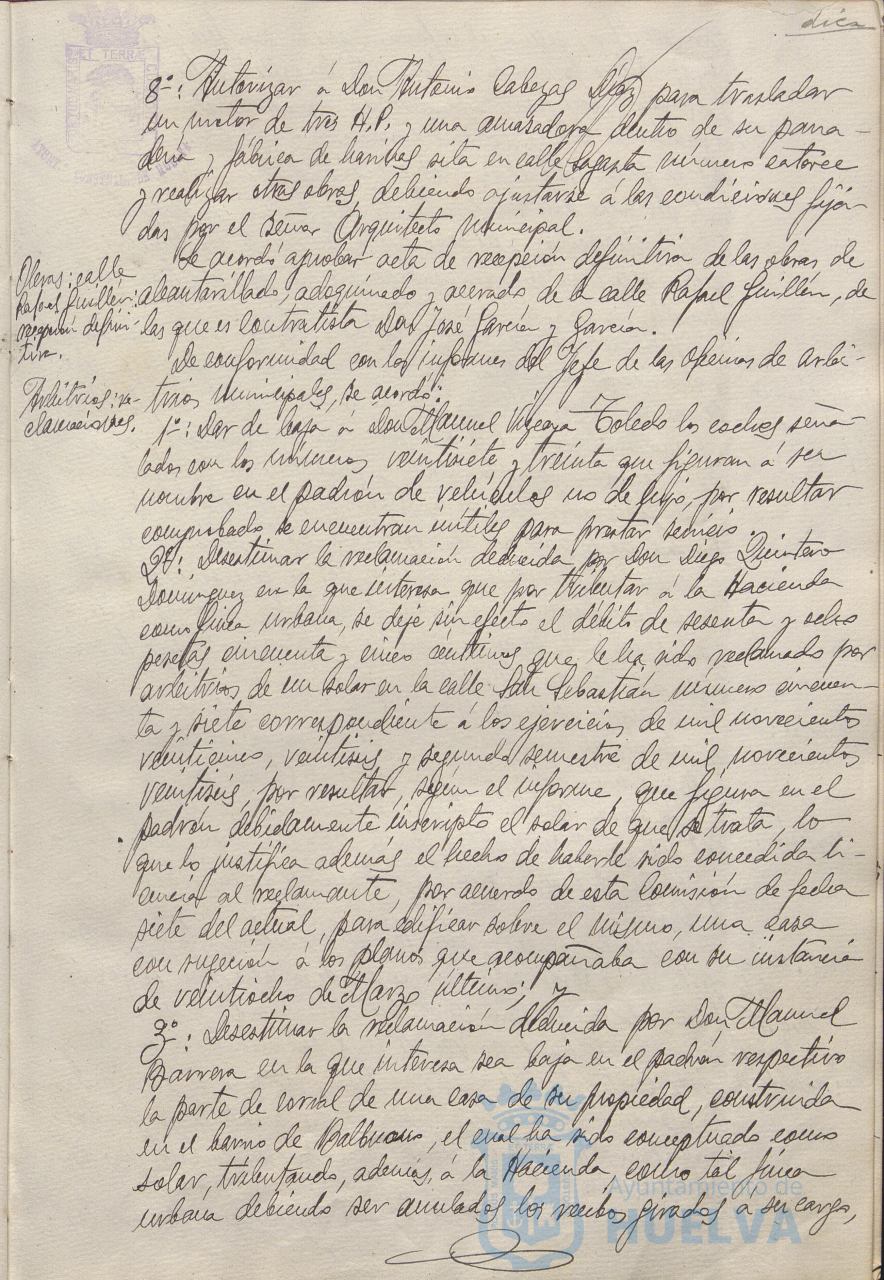 dica
8º: Autorizar á Don Antonio Cabezas Díaz para trasladar
un motor de tres H.P. y una amasadora dentro de su pana-
dería y fábrica de harinas sita en calle Sagasta número catorce
y realizar otras obras, debiendo ajustarse á las condiciones fija-
das por el señor Arquitecto Municipal.
Obras: calle
Rafael Guillén:
recepción defini-
tiva.
Se acordó aprobar acta de recepción definitiva de las obras de
alcantarillado, adoquinado y acerado de la calle Rafael Guillén, de
las que es contratista Don José García y García.
Arbitrios: re-
clamaciones.
De conformidad con los informes del Jefe de las Oficinas de arbi-
trios municipales, se acordó:
1º: Dar de baja á Don Manuel Vizcaya Toledo los coches seña-
lados con los números veintisiete y treinta que figuran á su
nombre en el padrón de vehículos no de lujo, por resultar
comprobado se encuentran inútiles para prestar servicio.
2º: Desestimar la reclamación deducida por Don Diego Quintero
Domínguez en la que interesa que por tributar á la Hacienda
como finca urbana, se deje sin efecto el débito de sesenta y ocho
pesetas cincuenta y cinco céntimos que le ha sido reclamado por
arbitrios de un solar en la calle San Sebastián número cincuen-
ta y siete correspondiente á los ejercicios de mil novecientos
veinticinco, veintiseis y segundo semestre de mil novecientos
veintiseis, por resultar, según el informe, que figura en el
padrón debidamente inscripto el solar de que se trata, lo
que lo justifica además el hecho de haberle sido concedida li-
cencia al reglamante, por acuerdo de esta Comisión de fecha
siete del actual, para edificar sobre el mismo, una casa
con sugeción á los planos que acompañaba con su instancia
de veintiocho de Marzo último; y
3º: Desestimar la reclamación deducida por Don Manuel
Barrera en la que interesa sea baja en el padrón respectivo
la parte de corral de una casa de su propiedad, construida
en el barrio de Balbueno, el cual ha sido conceptuado como
solar, tributando, además, á la Hacienda, como tal finca
urbana debiendo ser anulados los recibos girados á su cargo,
Ayuntamiento de
HUELVA